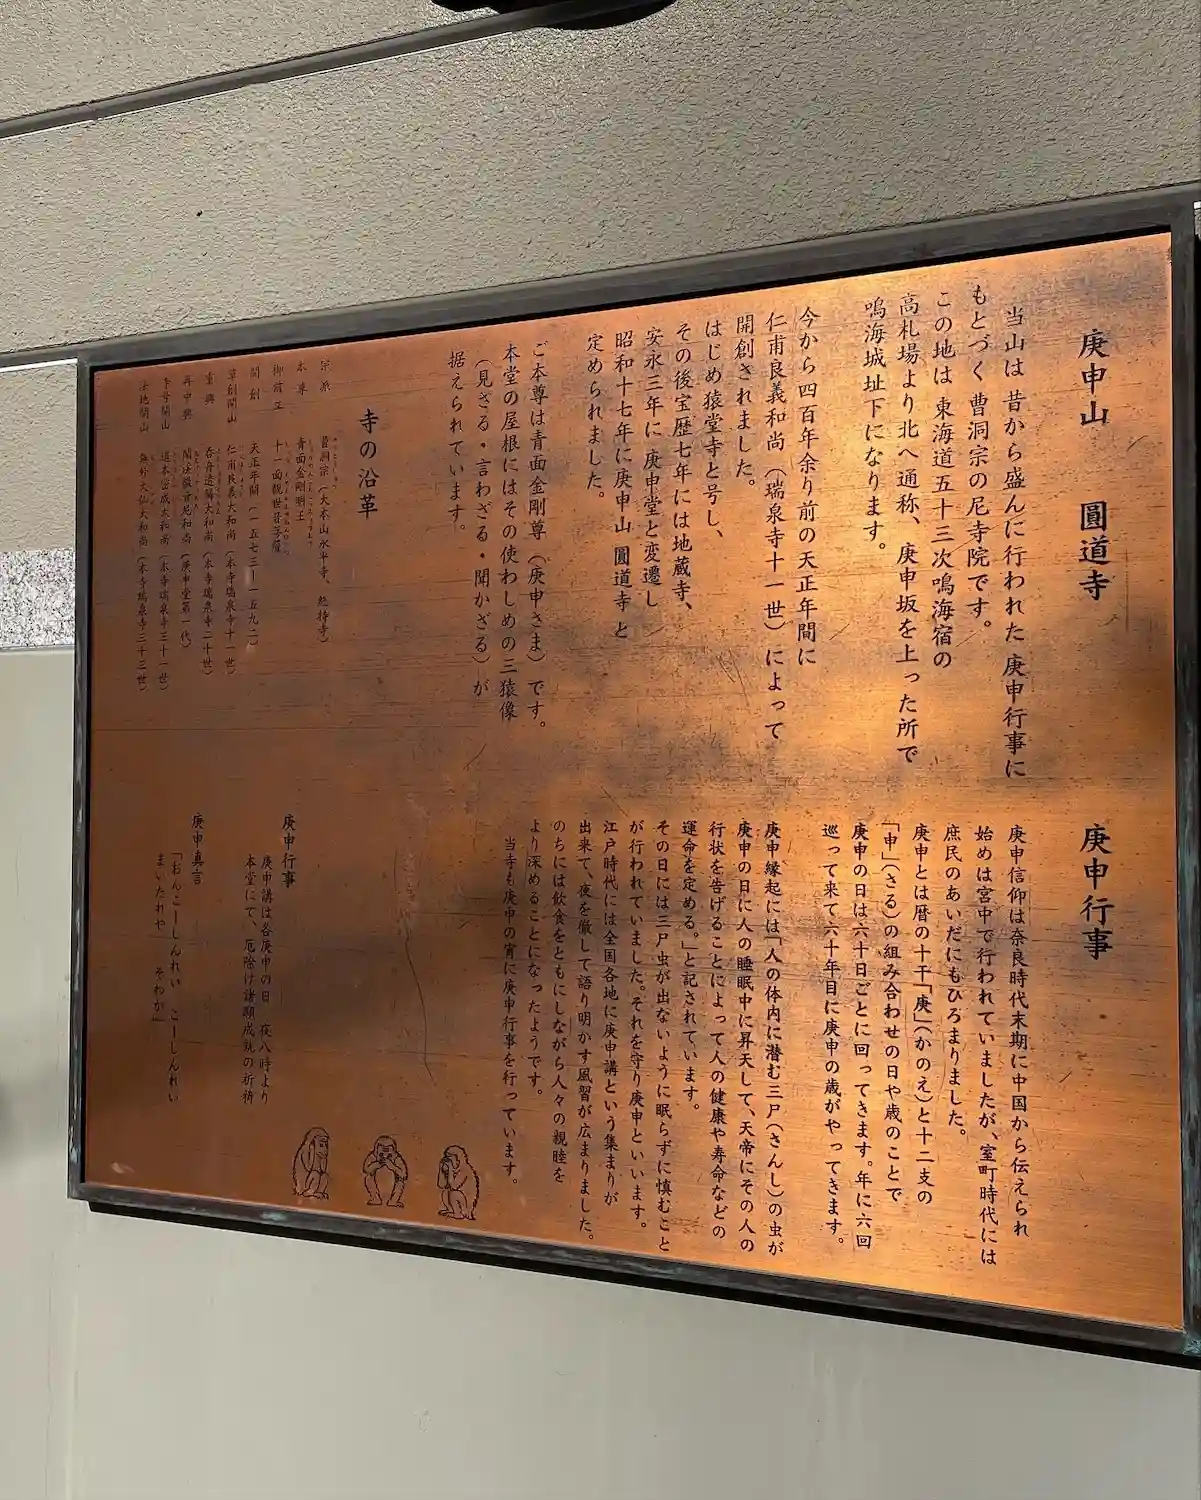 庚申山 圓道寺
当山は 昔から盛んに行われた 庚申行事に
もとづく 曹洞宗の尼寺院です。
この地は 東海道五十三次鳴海宿の
高札場より北へ通称、庚申坂を上った所で
鳴海城址下になります。
今から四百年余り前の天正年間に
仁甫良義和尚（瑞泉寺十一世）によって
開創されました。
はじめ猿堂寺と号し、
その後宝歴七年には地蔵寺、
安永三年に 庚申堂と変遷し
昭和十七年に庚申山 圓道寺 と
定められました。
ご本尊は青面金剛尊（庚申さま）です。
本堂の屋根にはその使わしめの三猿像
（見ざる・言わざる・聞かざる）が
据えられています。
寺の沿革
宗派 曹洞宗（大本山永平寺、総持寺）
本尊 青面金剛明王
御前立 十一面観世音菩薩
開創 天正年間（一五七三―一五九二）
草創開山 仁甫良義大和尚（本寺瑞泉寺十一世）
重興 呑舟造麟大和尚（本寺瑞泉寺二十世）
再中興 聞法微音尼和尚（庚申堂第一代）
寺号開山 道本岱成大和尚（本寺瑞泉寺三十一世）
法地開山 無外大仙大和尚（本寺瑞泉寺三十三世）
庚申行事
庚申信仰は奈良時代末期に中国から伝えられ
始めは宮中で行われていましたが、室町時代には
庶民のあいだにもひろまりました。
庚申とは暦の十干「庚」（かのえ）と十二支の
「申」（さる）の組み合わせの日や歳のことで
庚申の日は六十日ごとに回ってきます。年に六回
巡って来て六十年目に庚申の歳がやってきます。
庚申縁起には「人の体内に潜む三尸（さんし）の虫が
庚申の日に人の睡眠中に昇天して、天帝にその人の
行状を告げることによって人の健康や寿命などの
運命を定める。」と記されています。
その日には三尸虫が出ないように眠らずに慎むこと
が行われていました。それを守り庚申といいます。
江戸時代には全国各地に庚申講という集まりが
出来て、夜を徹して語り明かす風習が広まりました。
のちには飲食をともにしながら人々の親睦を
より深めることになったようです。
当寺も庚申の宵に庚申行事を行っています。
庚申行事
庚申講は各庚申の日 夜八時より
本堂にて、厄除け諸願成就の祈祷
庚申真言
「おんこーしんれい こーしんれい
まいたれや そわか」